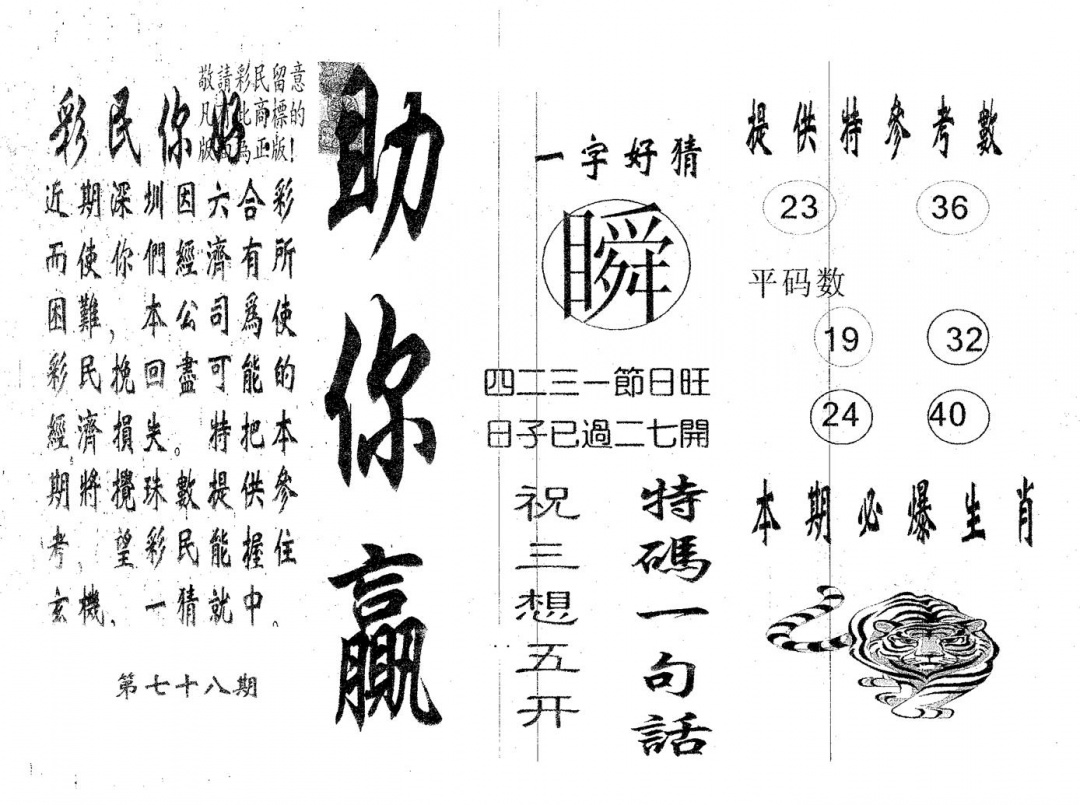 敬請彩民留意
凡 此商標的
版 為正版!
彩民你好
近期深圳因六合彩
而使你們經濟有所
困難,本公司爲使
彩民挽回盡可能的
經濟損失。特把本
期將攪珠數提供參
考,望彩民能握住
玄機,一猜就中。
第七十八期
助你贏
一字好猜
瞬
四二三一節日旺
日子已過二七開
特碼一句話
祝三想五开
提供特參考數
23 36
平码数
19 32
24 40
本期必爆生肖